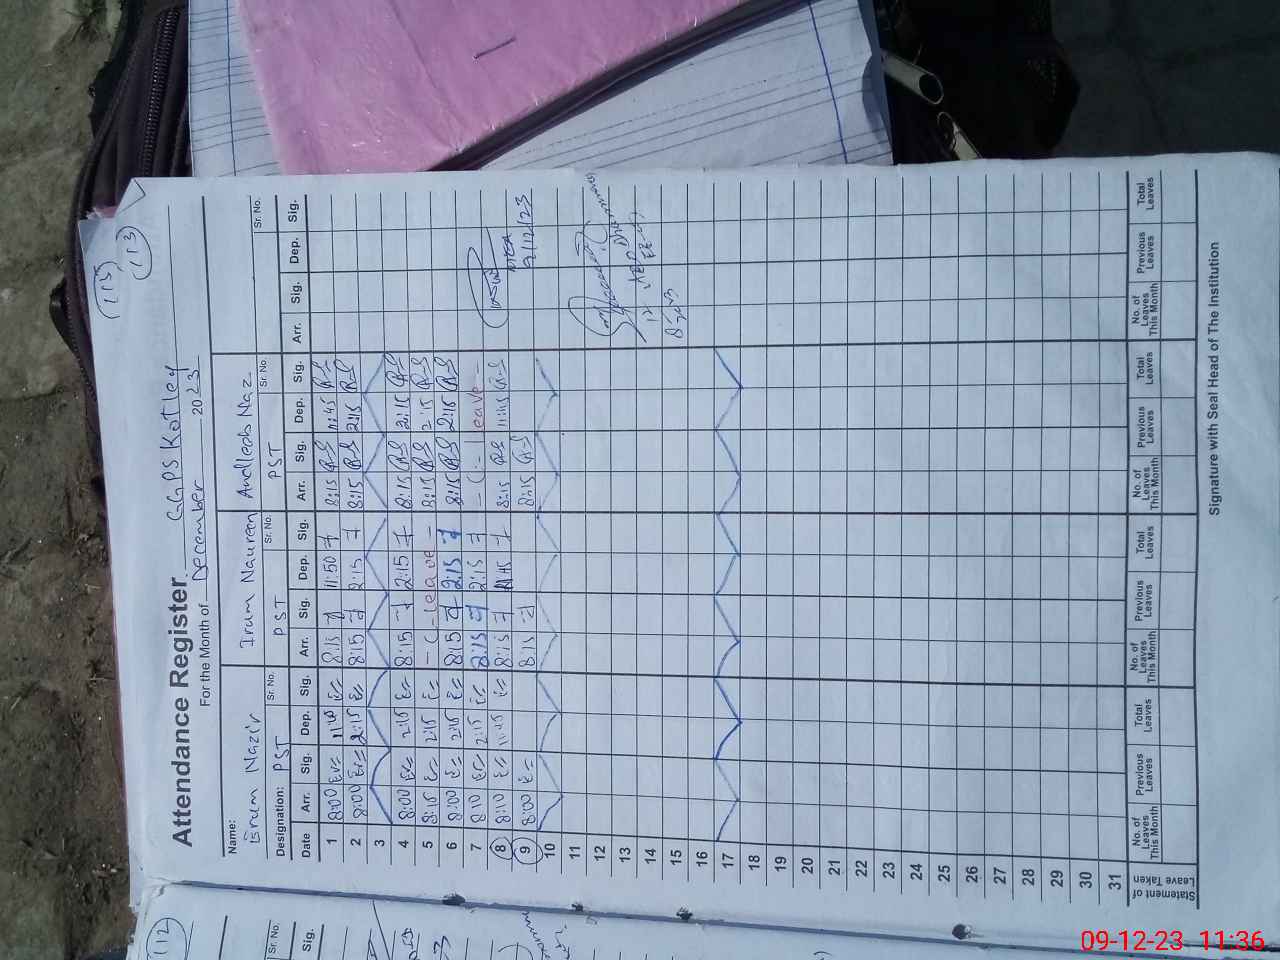 (113)
Attendance Register GGPS Kotley
For the Month of December 2023
Name: Eram Nazir Iram Naureen Andleeb Naz
Sr. No. Sr. No. Sr. No. Sr. No.
Designation: PST PST PST
Date Arr. Sig. Dep. Sig. Arr. Sig. Dep. Sig. Arr. Sig. Dep. Sig. Arr. Sig. Dep. Sig.
1 8:00 8:15 11:50 8:15 11:45
2 8:00 2:15 8:15 2:15 8:15 2:15
3
4 8:00 2:15 8:15 2:15 8:15 2:15
5 8:15 2:15 - ( - leave - 8:15 2:15
6 8:00 2:15 8:15 2:15 8:15 2:15
7 8:10 2:15 8:15 2:15 - ( - leave -
8 8:10 11:45 8:15 11:45 8:15 11:45
9 8:00 8:15 8:15 9/12/23
10
11
12
13
14
15
16
17
18
19
20
21
22
23
24
25
26
27
28
29
30
31
Statement of Leave Taken
No. of Leaves This Month Previous Leaves Total Leaves No. of Leaves This Month Previous Leaves Total Leaves No. of Leaves This Month Previous Leaves Total Leaves No. of Leaves This Month Previous Leaves Total Leaves
Signature with Seal Head of The Institution
(112)
Sr. No.
Sig.
09-12-23 11:36